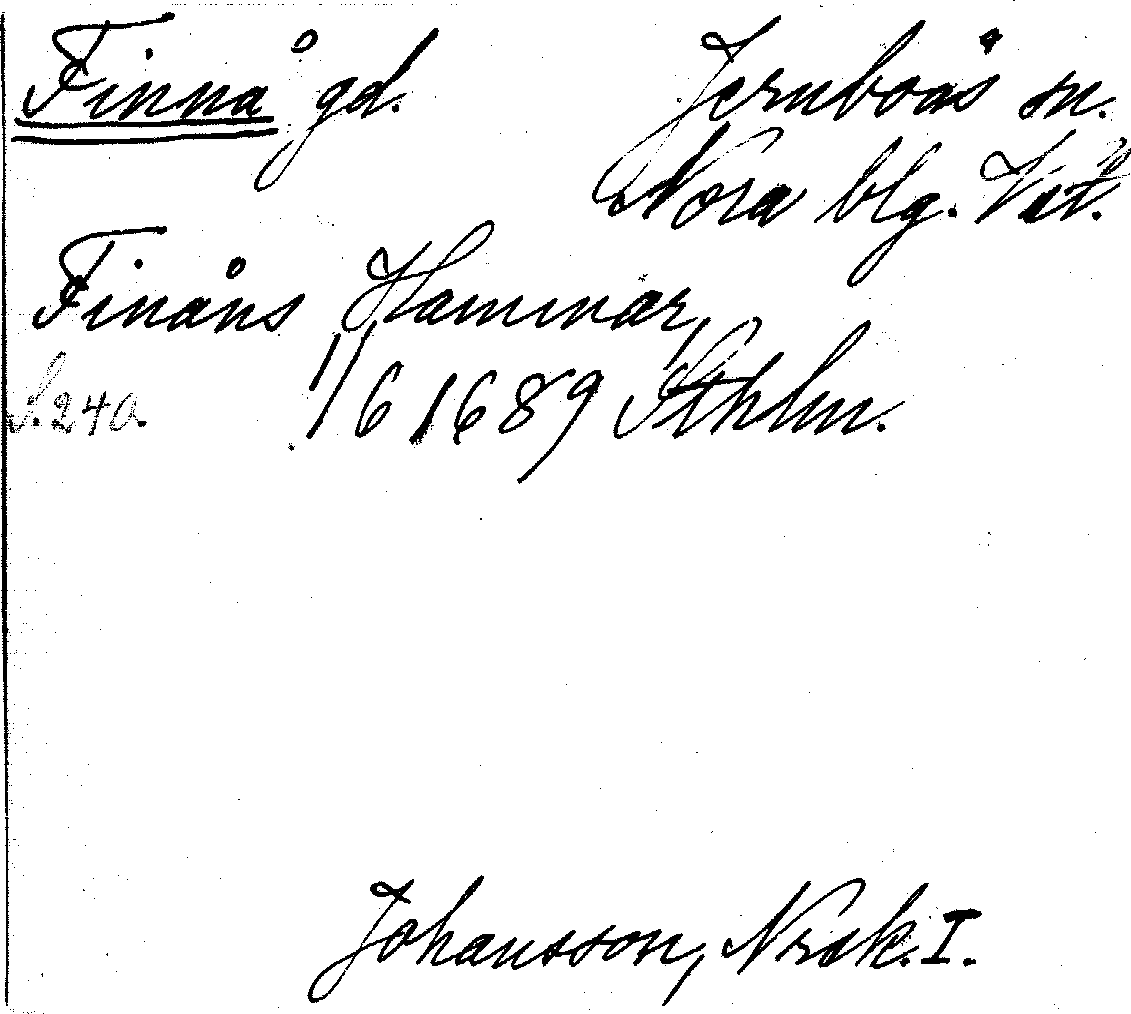 Finnå gd. Jernboås sn.
Nora blg. Vstl.
Finåns Hammar,
S. 240. 1/6 1689 Sthlm.
Johansson, Nrsk. I.